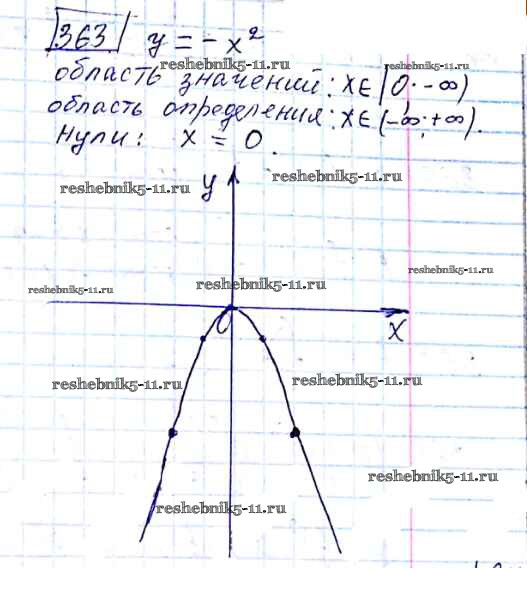 363 y = -x²
reshebnik5-11.ru
область значений: x∈[0; -∞)
область определения: x∈(-∞; +∞).
нули: x = 0.
reshebnik5-11.ru
reshebnik5-11.ru
y
reshebnik5-11.ru
reshebnik5-11.ru
reshebnik5-11.ru
0
x
reshebnik5-11.ru
reshebnik5-11.ru
reshebnik5-11.ru
reshebnik5-11.ru